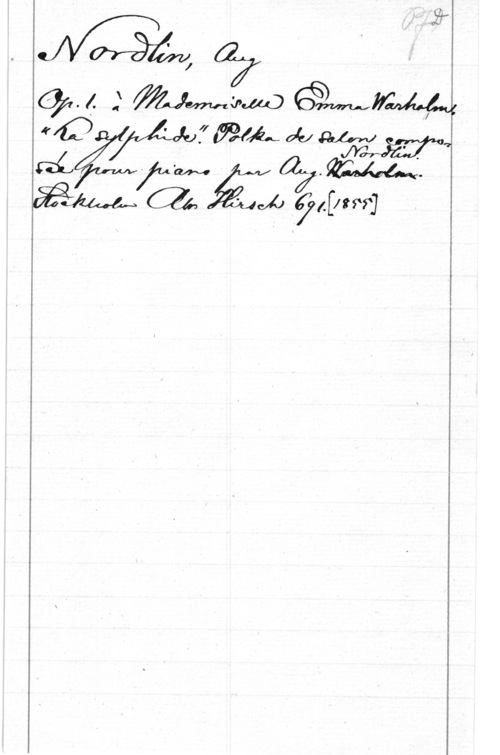 P7D
Nordlin, Aug
Op. 1. à Mademoiselle Emma Warholm.
"La sylphide". Polka de salon compo-
Nordlin.
sée pour piano par Aug. Warholm.
Stockholm Abr Hirsch 691. [1855]